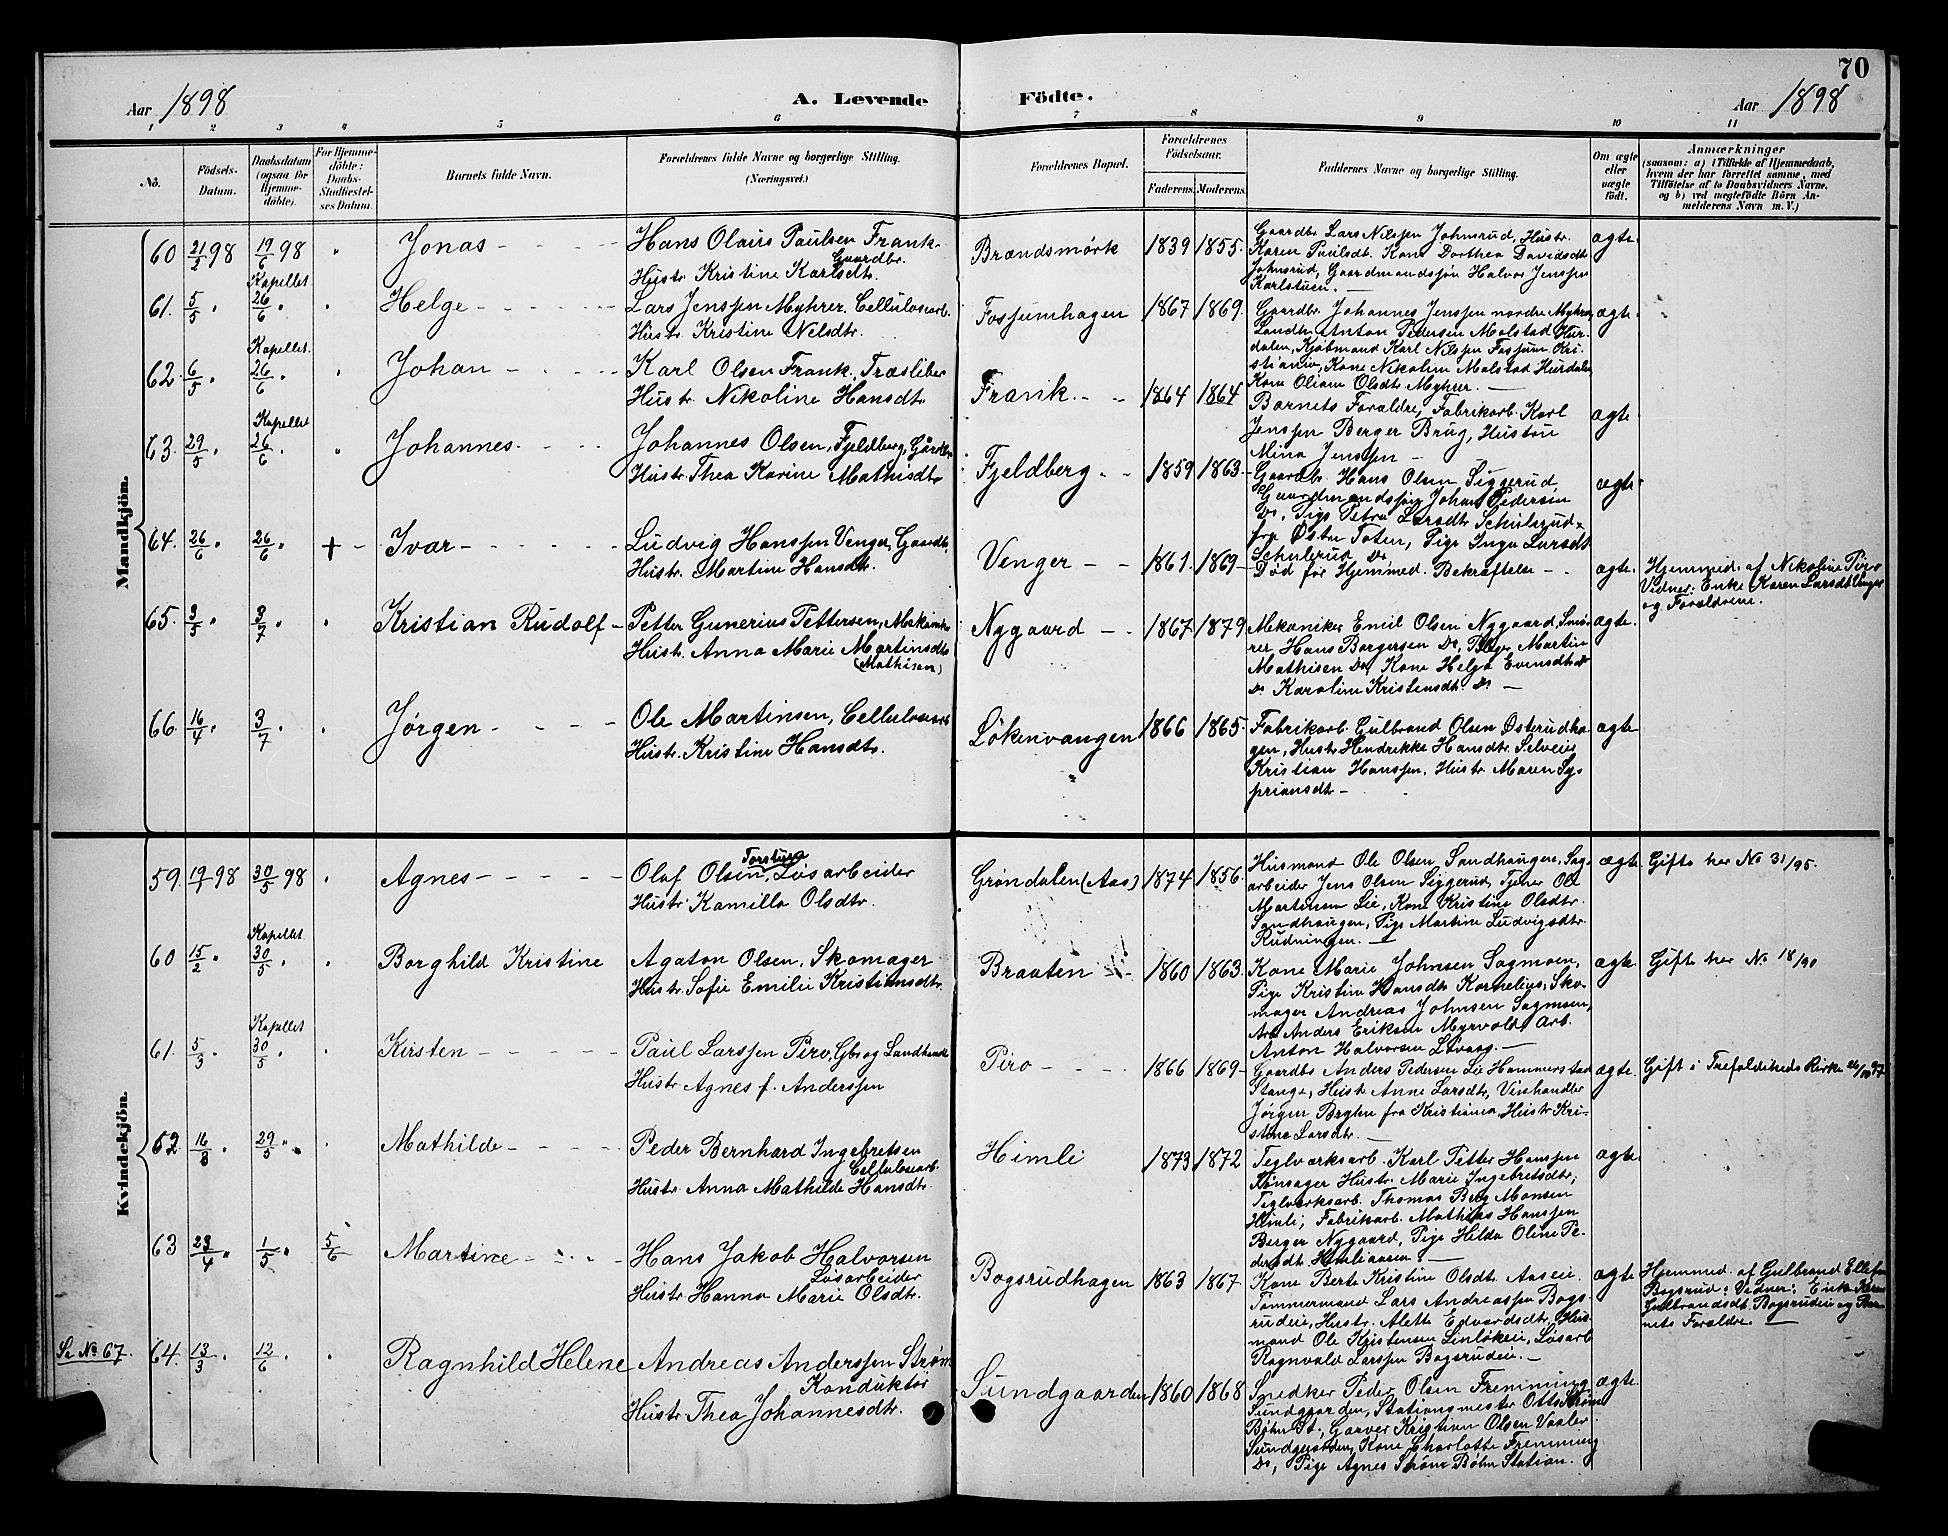 70
Aar 1898
A. Levende Födte.
Aar 1898
1 2 3 4 5 6 7 8 9 10 11
No.
Födsels-Datum.
Daabsdatum (ogsaa for Hjemme-döbte).
For Hjemme-döbte: Daabs-Stadfæstel-ses Datum.
Barnets fulde Navn.
Forældrenes fulde Navne og borgerlige Stilling.
(Næringsvei.)
Forældrenes Bopæl.
Forældrenes Födselsaar.
Faderens. Moderens.
Faddernes Navne og borgerlige Stilling.
Om ægte eller uægte födt.
Anmærkninger
(saasom: a) i Tilfælde af Hjemmedaab,
hvem der har forrettet samme, med
Tilföielse af to Daabsvidners Navne.
og b) ved uægtefödte Börn An-
melderens Navn m. V.)
Mandkjön.
60 21/2 98 19/6 98 " Jonas
Hans Olairs Paulsen Frank
Gaardbr.
Hustr Kristine Karlsdtr.
Brændsmörk 1839 1855
Gaardbr Lars Nilssen Johnsrud, Hustr.
Karen Paulsdt. Kone Dorthea Davidsdt
Johnsrud, Gaardmandssön Halvor Jenssen
Karlstuen.
ægte
Kapellet
61. 5/5 " 26/6 " " Helge
Lars Jenssen Myhrer. Cellulosearb.
Hustr Kristine Nilsdtr.
Fossumhagen 1867 1869.
Gaardbr Johannes Jenssen nordre Myhrer
Landh. Anton Pedersen Molstad Hur-
dalen, Kjöbmand Karl Nilssen Fossum Kri-
stiania, Kone Nikoline Molstad Hurdalen
Kone Oliane Olsdtr Myhrer.
ægte
Kapellet.
62 6/5 " 26/6 " " Johan
Karl Olsen Frank. Træsliber
Hustr. Nikoline Hansdtr
Frank 1864 1864
Barnets Forældre, Fabrikarb. Karl
Jenssen Berger Brug, Hustru
Mina Jenssen
ægte
Kapellet
63. 29/5 " 26/6 " " Johannes.
Johannes Olsen, Fjeldberg,
Hustr Thea Karine Mathisdtr
Fjeldberg 1859 1863
Gaardbr. Hans Olsen Siggerud
Gaardmandssön Johan Pedersen
Do, Pige Petra Larsdtr Schulerud
fra Östre Toten, Pige Inga Larsdtr
Schulerud Do
ægte
64. 26/6 " 26/6 " + Ivar
Ludvig Hanssen Venger, Gaardbr.
Hustr. Martine Hansdtr.
Venger 1861. 1869
Död för Hjemmed. Bekræftelse
ægte.
Hjemmed. af Nikoline Piro
Vidner: Enke Karen Larsdt Venger
og Forældrene.
65. 3/5 " 3/7 " " Kristian Rudolf
Petter Gunerius Pettersen, Mekaniker
Hustr. Anna Marie Martinsdtr
(Mathisen)
Nygaard 1867 1879
Mekaniker Emil Olsen Nygaard, Smö-
rer Hans Borgersen Do, Pige Martine
Mathisen Do, Kone Helga Evensdtr Do
Do Karoline Kristensdt. Do
ægte.
66. 16/4 " 3/7 " " Jørgen
Ole Martinsen, Cellulosearb
Hustr. Kristine Hansdtr.
Løkenvangen 1866 1865
Fabrikarb. Gulbrand Olsen Østerudha-
gen, Hustr Hendrikke Hansdtr. Selveier
Kristian Hanssen, Hustr Maren Sy-
priansdtr
ægte
Kvindekjön.
59. 30/5 98 " Agnes
Torstuen
Olaf Olsen, Løsarbeider
Hustr. Kamilla Olsdtr.
Grøndalen (Aas) 1874 1856.
Husmand Ole Olsen Sandhaugen, Sag-
arbeider Jens Olsen Siggerud, Tjener Ole
Martinsen Lie, Kone Kristine Olsdtr.
Sandhaugen, Pige Martine Ludvigsdtr.
Rudningen.
ægte
Gifte her No 31/95.
Kapellet
60 15/2 " 30/5 " " Borghild Kristine
Agaton Olsen, Skomager
Hustr. Sofie Emilie Kristiansdtr.
Braaten 1860 1863.
Kone Marie Johnsen Sagmoen,
Pige Kristine Hansdtr Kornelius, Sko-
mager Andreas Johnsen Sagmoen,
Arb Anders Eriksen Myrvold, Arb.
Anton Halvorsen
ægte.
Gifte her No 18/90
Kapellet
61. 5/3 " 30/5 " " Kirsten
Paul Larssen Piro, Gbr og Landhandler
Hustr Agnes f. Anderssen
Piro 1866 1869
Gaardbr Anders Pedersen Lie Hommerstad
Stange, Hustr Anne Larsdtr, Vinhandler
Jørgen Bryhn fra Kristiania, Hustr Kri-
stine Larsdtr.
ægte.
Gift i Trefoldikeds Kirke
62 16/3 " 29/5 " " Mathilde
Peder Bernhard Ingebretsen
Cellulosearb.
Hustr. Anna Mathilde Hansdtr
Himli 1873 1872
Teglværksarb. Karl Petter Hanssen
Tonsager Hustr. Marie Ingebretsdtr,
Teglverksarb. Thomas Berg Monsen
Himli, Fabrikarb. Mathias Hanssen
Berger Nygaard, Pige Hilda Oline Pe-
dersdt Himliaasen
ægte.
63 23/4 " 1/5 " 5/6 Martine
Hans Jakob Halvorsen
Løsarbeider
Hustr Hanna Marie Olsdtr.
Bogsrudhagen 1863 1867
Kone Berte Kristine Olsdt. Aaseie.
Tømmermand Lars Andreassen Bogs-
rudeie, Hustr. Alette Edvardsdtr, Hus-
mand Ole Kristensen Linløkeie, Løsarb
Ragnvald Larssen Bogsrudeie.
ægte
Hjemmed. af Gulbrand Ellefsen
Bogsrud. Vidner: Enke Karen
Gulbrandsdt. Bogsrudeie og Bar-
nets Forældre
Se No 67. 64. 13/3 " 12/6 " " Ragnhild Helene
Andreas Anderssen Strøm
Konduktør
Hustr Thea Johannesdtr.
Sundgaarden 1860 1868
Snedker Peder Olsen Fremming
Sundgaarden, Stationsmester Otto Strøm
Bøhn St., Garver Kristian Olsen Vaaler
Sundgaarden, Kone Charlotte Fremming
Do, Pige Agnes Strøm Bøhn Station.
ægte.